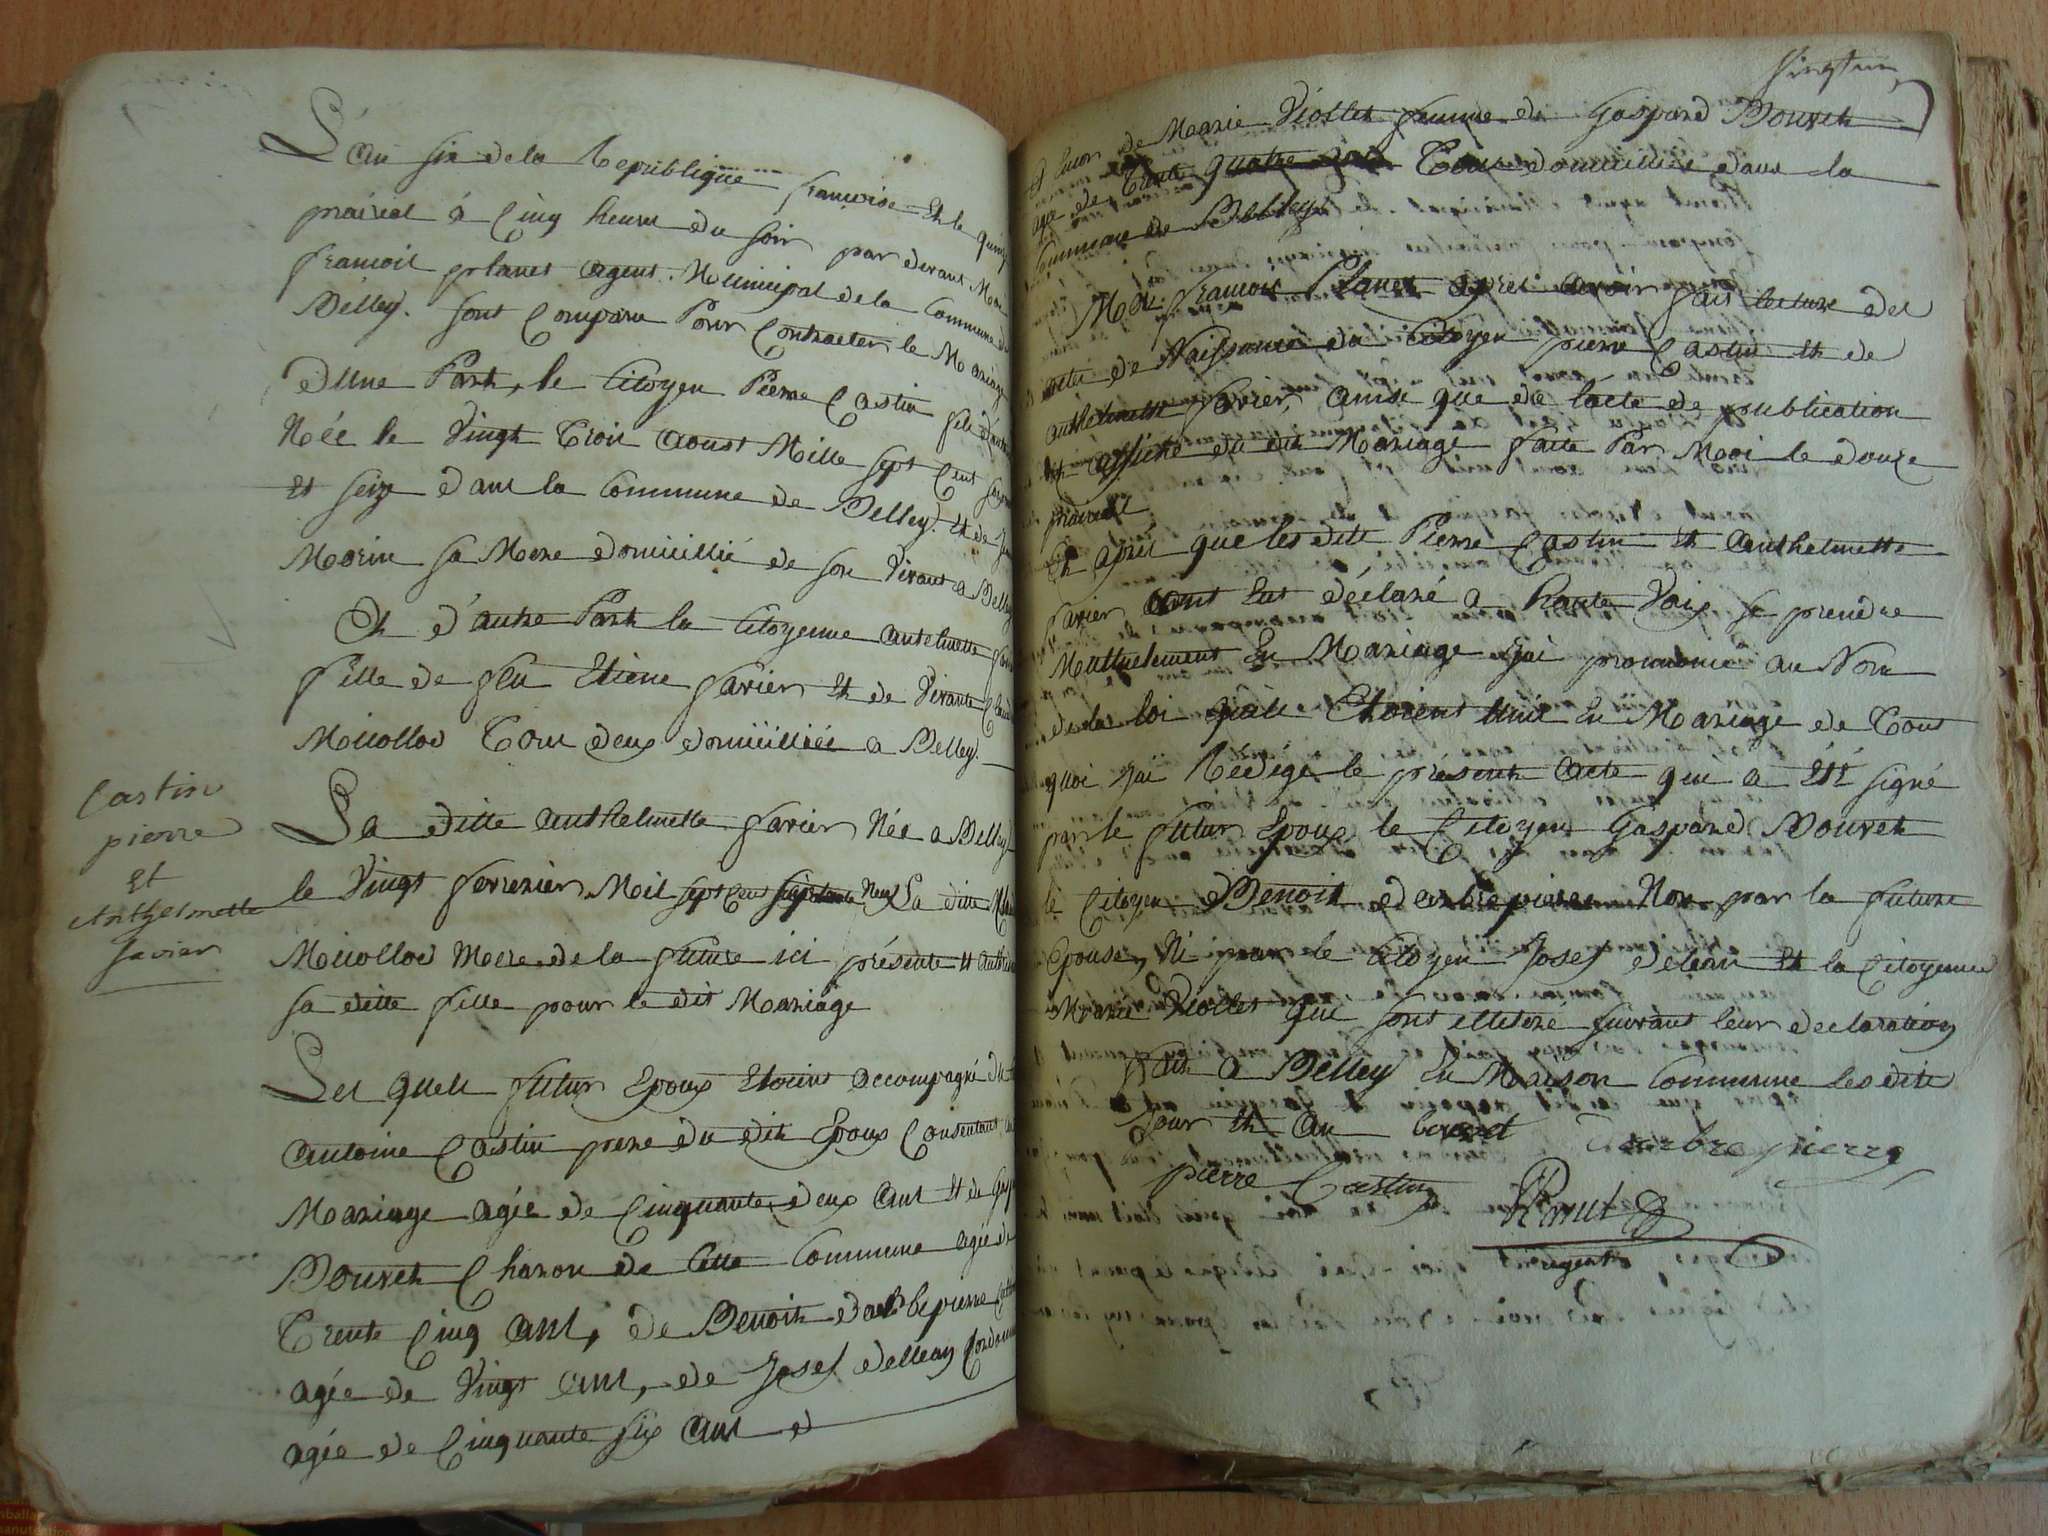 L'an six de la Republique françoise Et le quinze
prairial à Cinq heures du soir par devant Moi
francois planet agent Municipal de la Commune de
Belley. sont Comparu Pour Contracter le Mariage
D'Une Part, le Citoyen Pierre Castin fils d'antoine
Née le Vingt Trois aoust Mille sept Cent
Et seize dans la Commune de Belley. Et de
Morin sa Mere domicillié de son Vivant a Belley
Et d'autre Part la Citoyenne antelmette
fille de feu Etiene favier Et de Vivante
Miollod Tous deux domicilliés a Belley.
Castin
pierre
Et
Anthelmette
favier
La ditte anthelmette favier Née a Belley
le Vingt fevrerier Mil sept Cent septante Neuf La ditte
Miollod Mere de la future ici présente Et
sa ditte fille pour le dit Mariage
Les quels futur Epoux Etoient accompagné de
antoine Castin pere du dit Epoux Consentant au
Mariage agée de Cinquante deux ans Et de
Bouvet Charon de Cette Commune agée de
Trente Cinq ans, de Benoit darbepierre
agée de Vingt ans, de Josef dellean
agée de Cinquante six ans d
Et Encor de Marie Viollet femme de Gaspard Bouvet
age de Trente quatre ans Tous domicilliés dans la
Commune de Belley
Moi francois Planet apres avoir fait lecture des
actes de Naissance du Citoyen pierre Castin Et de
anthelmette favier, ainsi que de l'acte de publication
Et affiche du dit Mariage faite Par Moi le douze
prairial
Et après que les dits Pierre Castin Et anthelmette
favier ont Eut déclaré a haute Voix se prendre
Muttuelement En Mariage j'ai prononcé au Nom
de la loi qu'ils Etoient Unis En Mariage de Tout
quoi j'ai Rédigé le présent acte que a Eté signé
par le futur Epoux le Citoyen Gaspard Bouvet
le Citoyen Benoit darbepierre Non par la future
Epouse, Ni par le Citoyen Josef delean Et la Citoyenne
Marie Viollet que sont illiteré suivant leur declaration
Fait a Belley En Maison Commune les dits
Jour Et an bouvet Darbre pierre
pierre Castin
Planet
agent